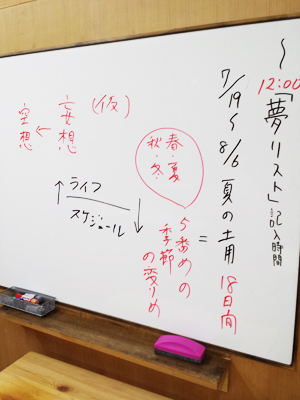 〜
12:00
「夢リスト」記入時間
7/19〜8/6 夏の土用 18日間
=
5番めの
季節
の変りめ
春・夏
秋・冬
ライフ
スケジュール
(仮)
妄想
↓
空想